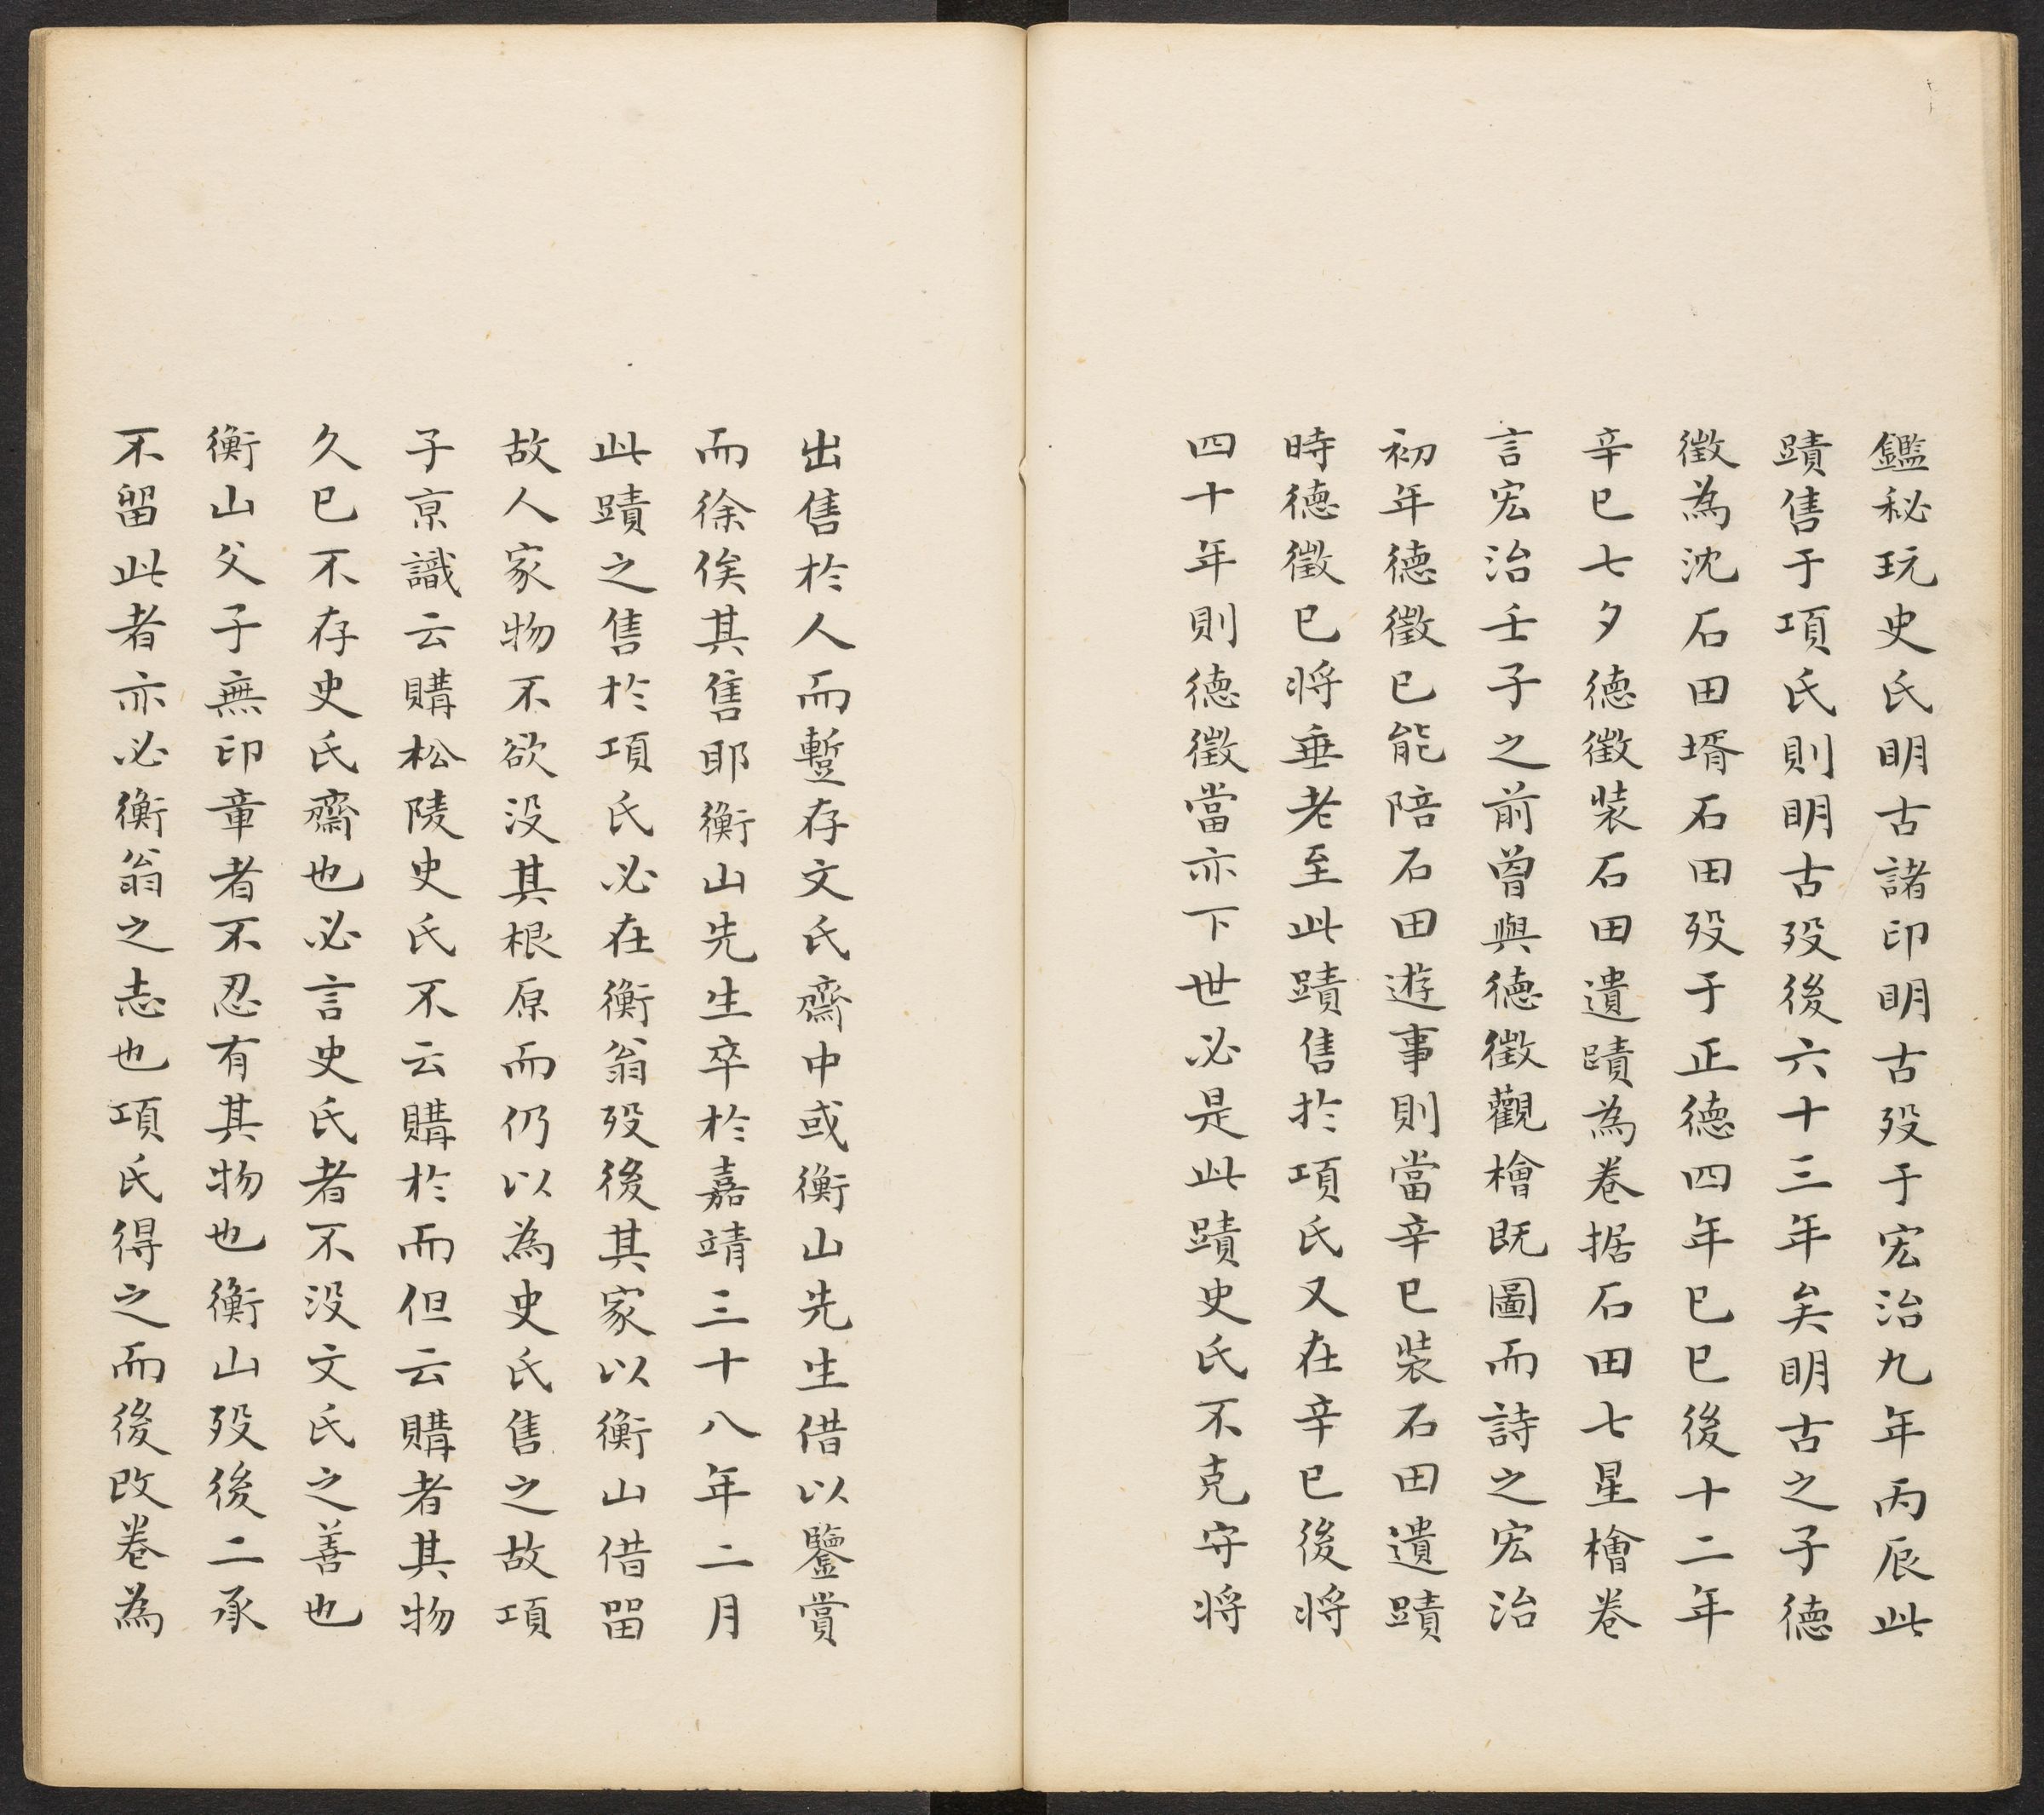 鑑秘玩史氏明古諸印明古歿于宏治九年丙辰此
蹟售于項氏則明古歿後六十三年矣明古之子德
徵為沈石田壻石田歿于正德四年巳巳後十二年
辛巳七夕德徵裝石田遺蹟為卷据石田七星檜卷
言宏治壬子之前曾與德徵觀檜既圖而詩之宏治
初年德徵已能陪石田遊事則當辛巳裝石田遺蹟
時德徵已将垂老至此蹟售於項氏又在辛巳後将
四十年則德徵當亦下世必是此蹟史氏不克守将
出售於人而蹔存文氏齋中或衡山先生借以鑒賞
而徐俟其售耶衡山先生卒於嘉靖三十八年二月
此蹟之售於項氏必在衡翁歿後其家以衡山借留
故人家物不欲没其根原而仍以為史氏售之故項
子京識云購松陵史氏不云購於而但云購者其物
久已不存史氏齋也必言史氏者不没文氏之善也
衡山父子無印章者不忍有其物也衡山歿後二承
不留此者亦必衡翁之志也項氏得之而後改卷為